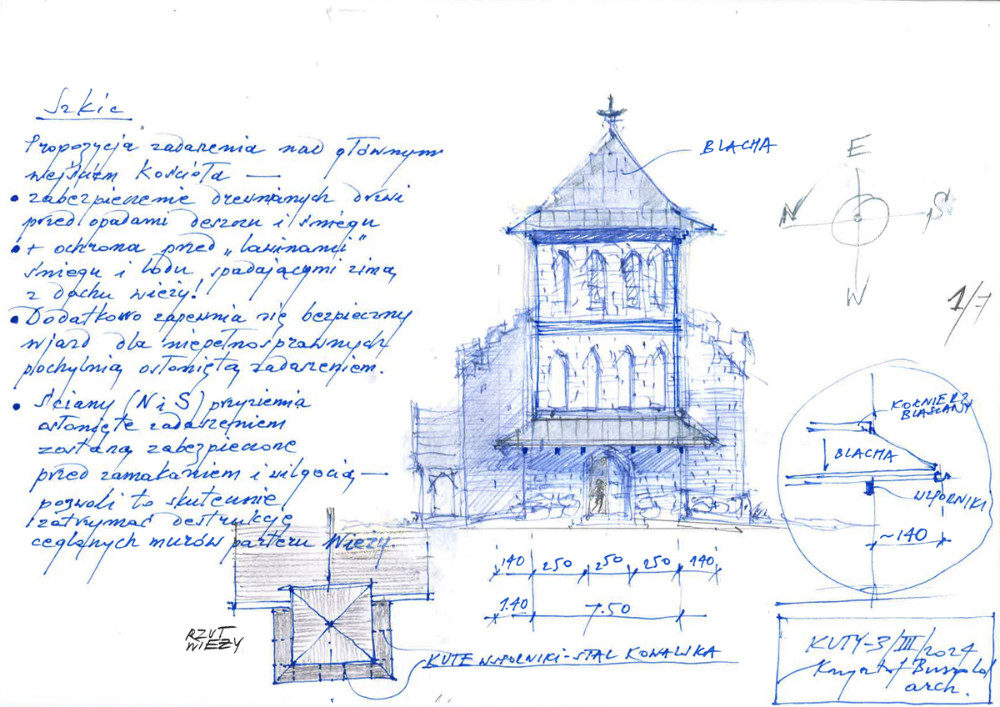 Szkic
Propozycja zadaszenia nad głównym
wejściem Kościoła —
• zabezpieczenie drewnianych drzwi
przed opadami deszczu i śniegu
• + ochrona przed „lawinami"
śniegu i lodu spadającymi zimą
z dachu wieży!
• Dodatkowo zapewnia się bezpieczny
wjazd dla niepełnosprawnych
pochylnią osłoniętą zadaszeniem.
• Ściany (N i S) przyziemia
osłonięte zadaszeniem
zostaną zabezpieczone
przed zamakaniem i wilgocią —
pozwoli to skutecznie
zatrzymać destrukcję
ceglanych murów parteru Wieży.
BLACHA
E
N
S
W
1/7
KOŁNIERZ
BLASZANY
BLACHA
WSPORNIKI
~140
140 250 250 250 140
1.40 7.50
RZUT
WIEŻY
KUTE WSPORNIKI - STAL KOWALSKA
KUTY-3/III/2024
Krzysztof
arch.